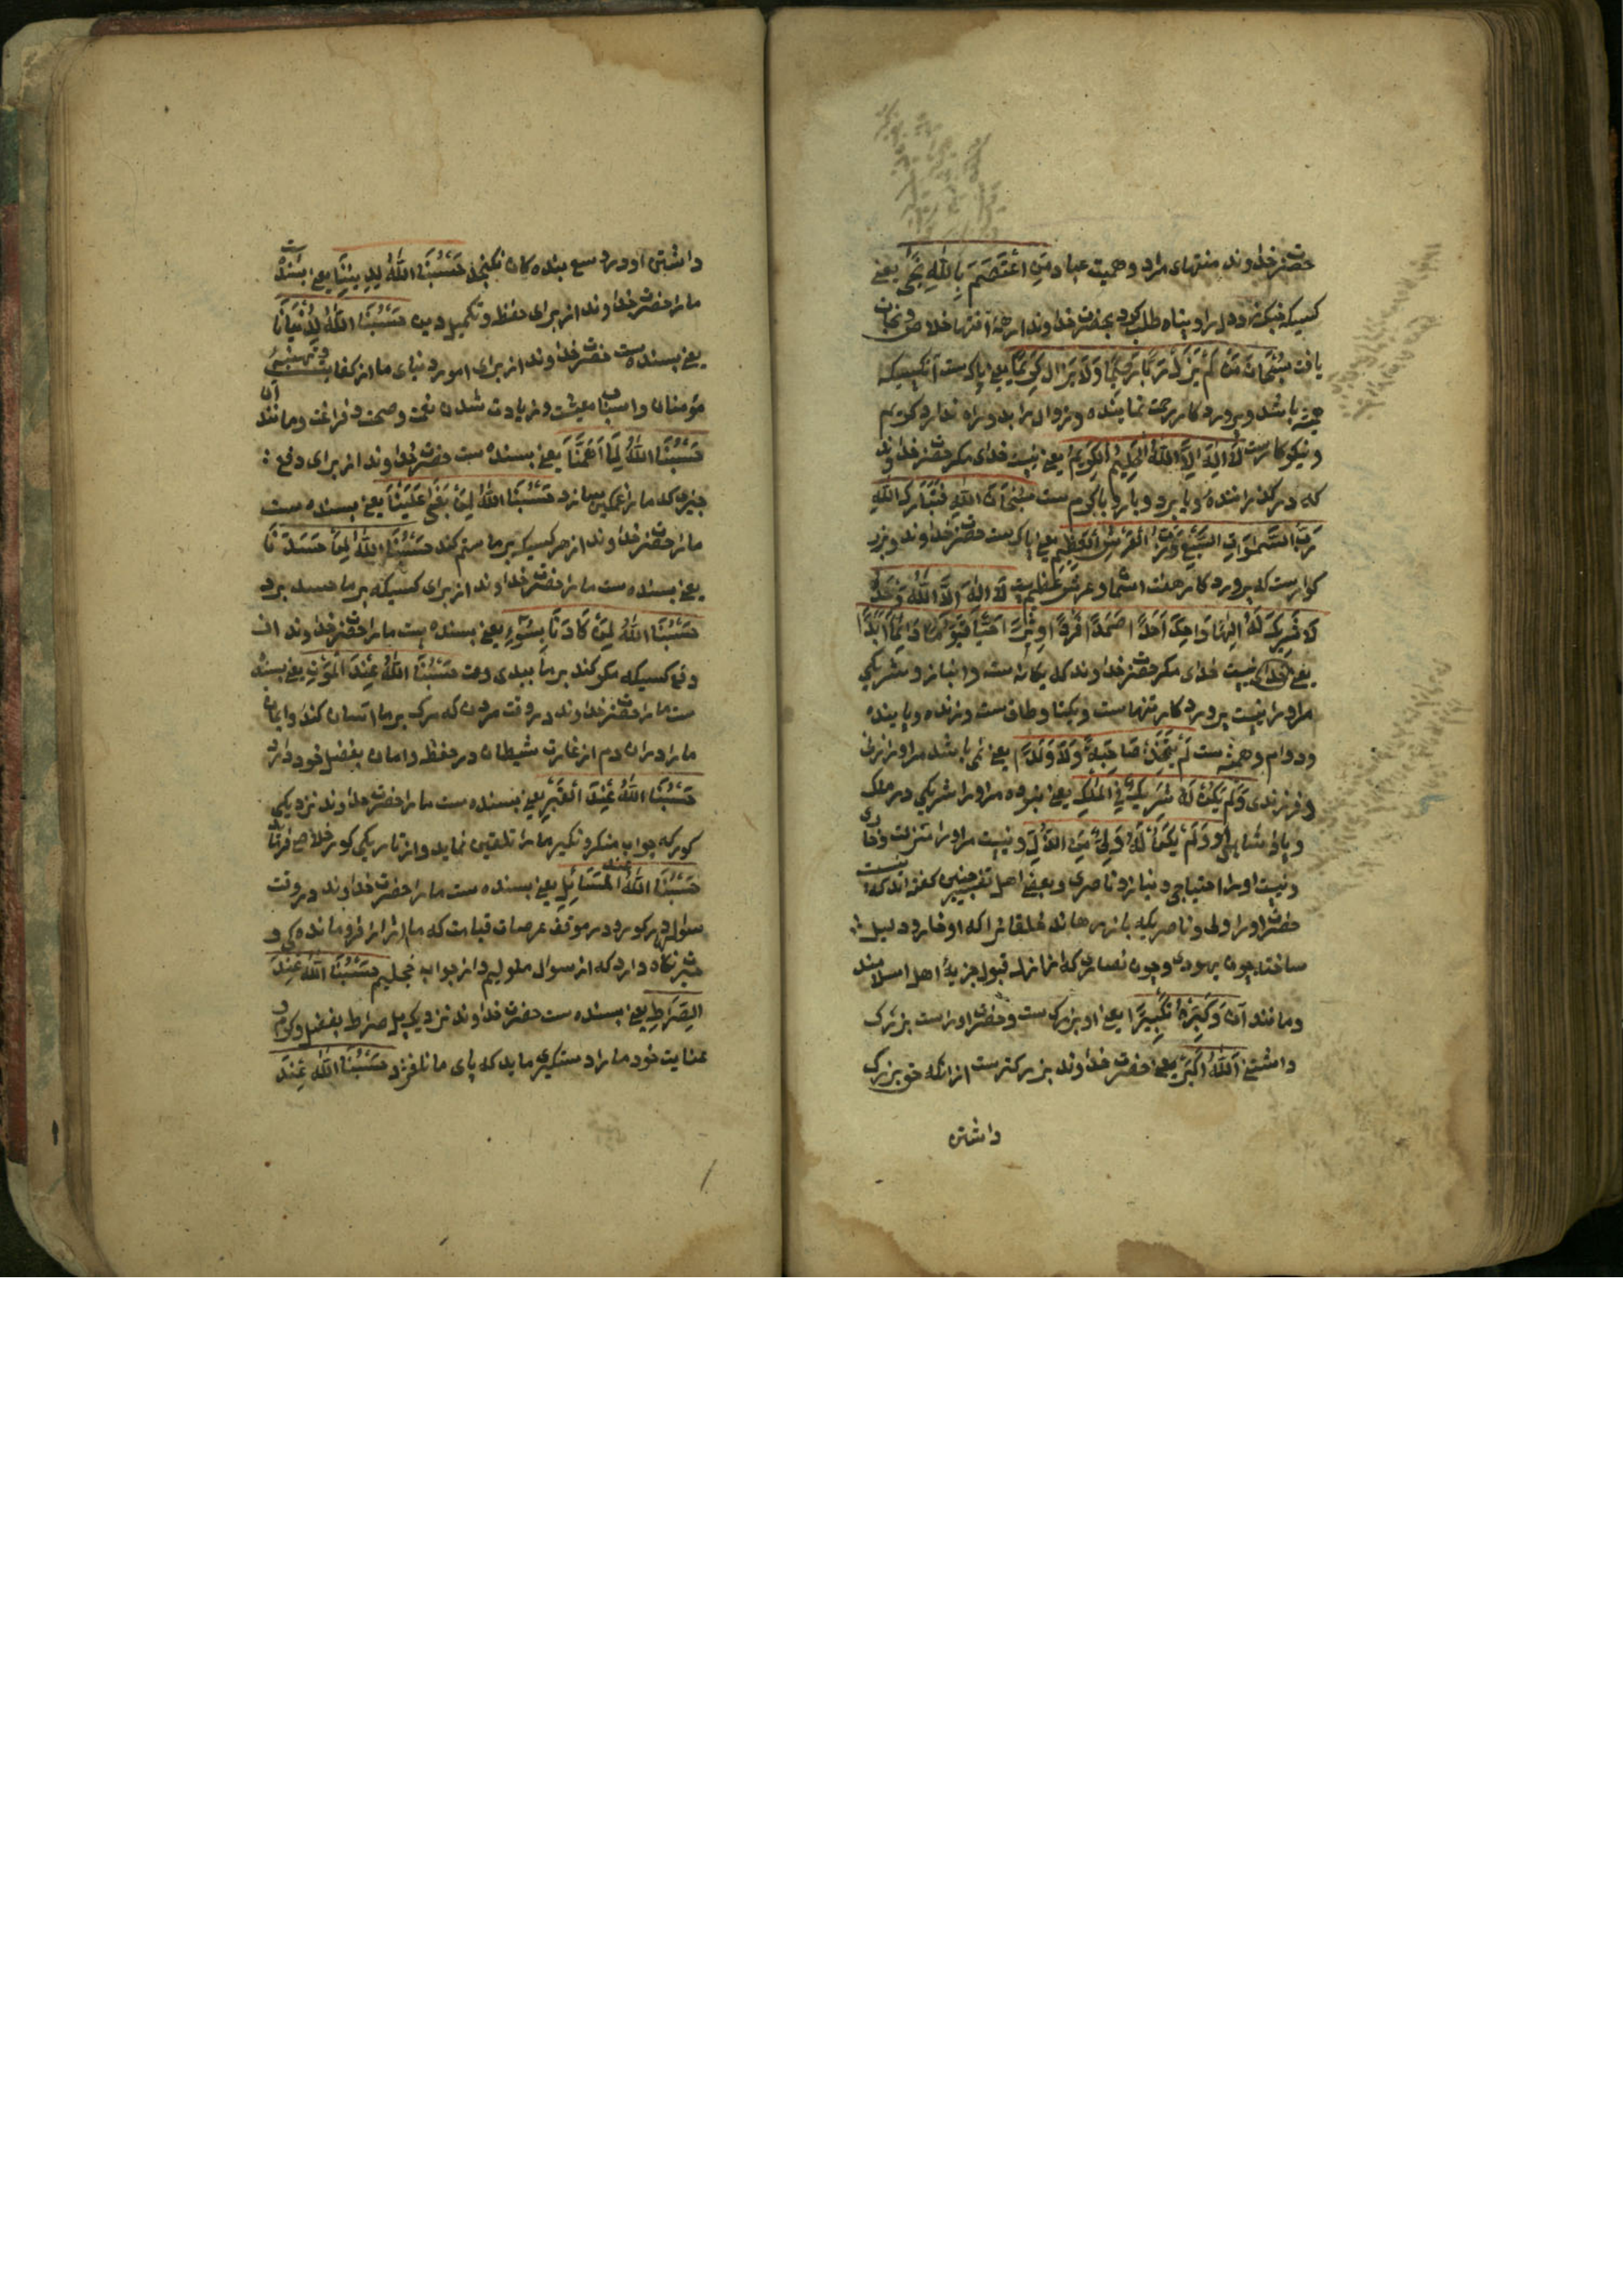 حضرت خداوند منتهای مراد وهمیت عباد مَنِ اعْتَصَمَ بِاللهِ نَجَی یعنے
کسیکه چنگ زد ویرا وپناه طلب کرد بحضرت خداوند از همه آفتها خلاص ونجات
یافت سُبْحَانَ مَنْ لَمْ یَزَلْ رَبًّا رَحِیمًا وَلَا یَزَالُ کَرِیمًا یعنی پاکست آنکسیکه
همیشه باشد وپروردکار رحمت نماینده وزوال برابد ویرا ندارد کریم
ونیکوکارست لَا اِلٰهَ اِلَّا اللهُ الْحَلِیمُ الْکَرِیمُ یعنی نیست خدای مکر حضرت خداوند
که درکذراننده وبابرد وبارد باکرم ست سُبْحَانَ اللهِ فَتَبَارَکَ اللهِ
رَبِّ السَّمٰوَاتِ السَّبْعِ وَرَبِّ الْعَرْشِ الْعَظِیمِ یعنی پاکست حضرت خداوند وبزر
کوارست که پروردکار هفت اسمان وعرش عظیم ست لَا اِلٰهَ اِلَّا اللهُ وَحْدَهُ
لَا شَرِیکَ لَهُ اِلٰهًا وَاحِدًا اَحَدًا صَمَدًا فَرْدًا وِتْرًا حَیًّا قَیُّوْمًا دَائِمًا اَبَدًا
یعنی نیست خدای مکر حضرت خداوند که یکانه ست وانباز وشریکی
مراورا نیست پروردکار تنهاست ویکتا وطاق ست وزنده وپاینده
ودوام وهمیشه ست لَمْ یَتَّخِذْ صَاحِبَةً وَلَا وَلَدًا یعنی نمی باشد مراورا زن
وفرزندی وَلَمْ یَکُنْ لَهُ شَرِیکٌ فِی الْمُلْکِ یعنی نبوده مراورا شریکی در ملک
وپادشاهی وَلَمْ یَکُنْ لَهُ وَلِیٌّ مِنَ الذُّلِّ ونیست مراورا مذلت وخاری
ونیست اورا احتیاجی ونیاز وناصری وبعضی اهل تفسیر چنین کفته اند که نیست
حضرت اورا ولی وناصریکه باز رهاند خلقانرا که او خار وذلیل
ساخته چون یهودی وچون نصاری که قبول جزیهٔ اهل اسلامند
ومانند آن وَکَبِّرْهُ تَکْبِیرًا یعنی او بزرکست وحضرت اوراست بزرک
داشتنے اَللهُ اَکْبَرُ یعنی حضرت خداوند بزرکترست ازانکه حق بزرک
داشتن
داشتن او در وسع بنده کان نکنجد حَسْبُنَا اللهُ لِدِیْنِنَا یعنی بسنده است
مارا حضرت خداوند از برای حفظ وتکمیل دین حَسْبُنَا اللهُ لِدُنْیَانَا
یعنی بسنده ست حضرت خداوند از برای امورد نیای ما از کفایت
مؤمنان واسباب معیشت وزیادت شدن نعمت وصحت وفراغت ومانند آن
حَسْبُنَا اللهُ لِمَا اَهَمَّنَا یعنی بسنده ست حضرت خداوند از برای دفع
چیزی که مارا غمکین سازد حَسْبُنَا اللهُ لِمَنْ بَغٰی عَلَیْنَا یعنی بسنده ست
مارا حضرت خداوند از هر کسیکه بر ما ستم کند حَسْبُنَا اللهُ لِمَنْ حَسَدَنَا
یعنی بسنده ست مارا حضرت خداوند از برای کسیکه بر ما حسد برد
حَسْبُنَا اللهُ لِمَنْ کَادَنَا بِسُوْءٍ یعنی بسنده ست مارا حضرت خداوند از
دفع کسیکه مکر کند بر ما ببدی حَسْبُنَا اللهُ عِنْدَ الْمَوْتِ یعنی بسنده
ست مارا حضرت خداوند در وقت مردن که مرک بر ما اسان کند وایمان
مارا دران دم از غارت شیطان در حفظ وامان بفضل خود دارد
حَسْبُنَا اللهُ عِنْدَ الْقَبْرِ یعنی بسنده ست مارا حضرت خداوند نزدیکی
کور که جواب منکر ونکیر مارا تلقین نماید واز تاریکی کور خلاص
حَسْبُنَا اللهُ عند الْمَسَائِلِ یعنی بسنده ست مارا حضرت خداوند در وقت
سؤال در کور ودر موقف عرصات قیامت که مارا فرومانده کی
نکاه دارد که از سوال ملولیم واز جواب خجلیم حَسْبُنَا اللهُ عِنْدَ
الصِّرَاطِ یعنی بسنده ست حضرت خداوند نزدیک پل صراط بفضل وکرم و
عنایت خود مارا دستکیری نماید که پای ما نلغزد حَسْبُنَا اللهُ عِنْدَ